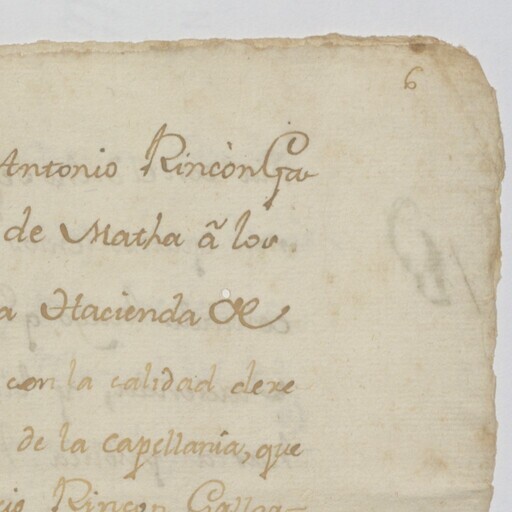 6
Antonio Rincòn Ga-
de Matha â los
a Hacienda de
con la calidad de re
de la capellanía, que
cio Rincon Gallar-